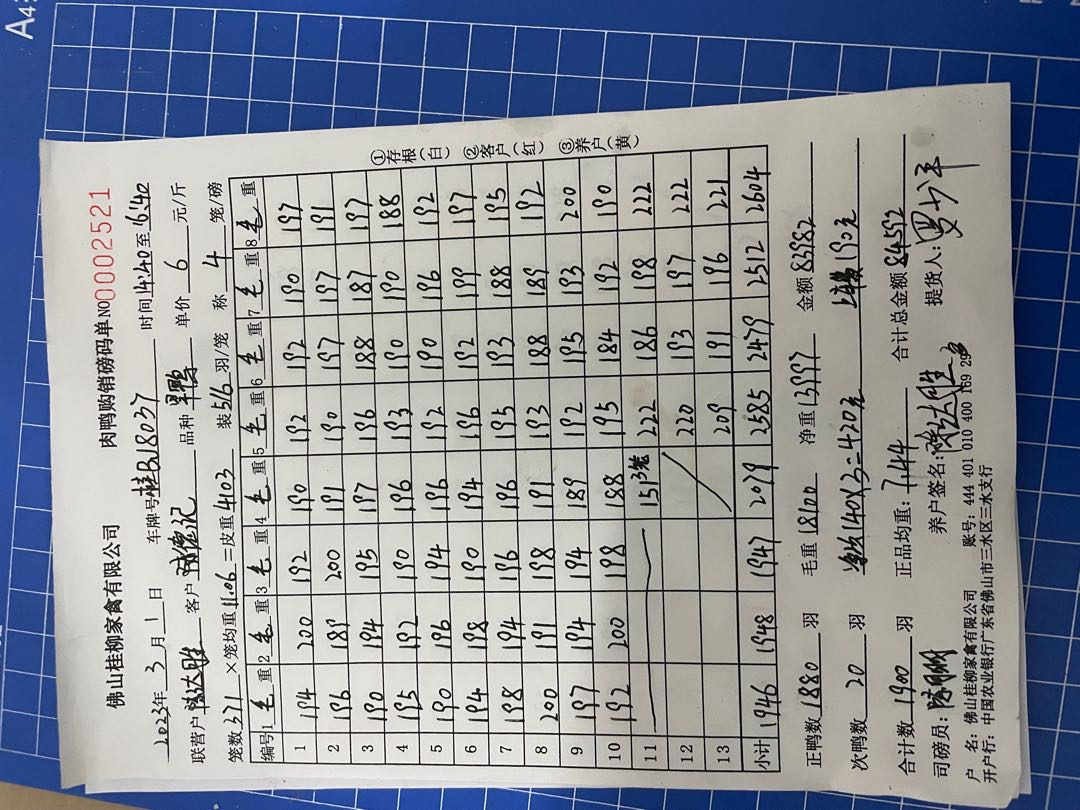 佛山桂柳家禽有限公司 肉鸭购销磅码单 NO 0002521
2023年 3 月 1 日 车牌号 桂B18037 时间 14:40 至 16:40
联营户 客户 品种 单价 6 元/斤
笼数 371 ×笼均重 11.06 =皮重 4103 装 5/6 羽/笼 称 4 笼/磅
编号 1 毛 重 2 毛 重 3 毛 重 4 毛 重 5 毛 重 6 毛 重 7 毛 重 8 毛 重
1 194 200 192 190 192 192 190 197
2 196 189 200 191 190 197 197 191
3 190 194 195 197 196 188 187 197
4 195 192 190 196 193 190 190 188
5 190 196 194 196 192 190 196 192
6 194 198 190 194 196 192 199 197
7 198 194 196 196 195 193 188 195
8 200 191 198 191 193 188 189 192
9 197 194 194 189 192 195 193 200
10 192 200 198 188 195 184 192 190
11 151 3笼 222 186 198 222
12 220 193 197 222
13 209 191 196 221
小计 1946 1948 1947 2079 2585 2479 2512 2604
正鸭数 1880 羽 毛重 18100 净重 13997 金额 83982
次鸭数 20 羽 140×3=420元 190元
合计数 1900 羽 正品均重: 7.44 合计总金额 84592
司磅员: 养户签名: 提货人:
户 名: 佛山桂柳家禽有限公司 账号: 444 401 010 400 169 29
开户行: 中国农业银行广东省佛山市三水区三水支行
①存根(白) ②客户(红) ③养户(黄)